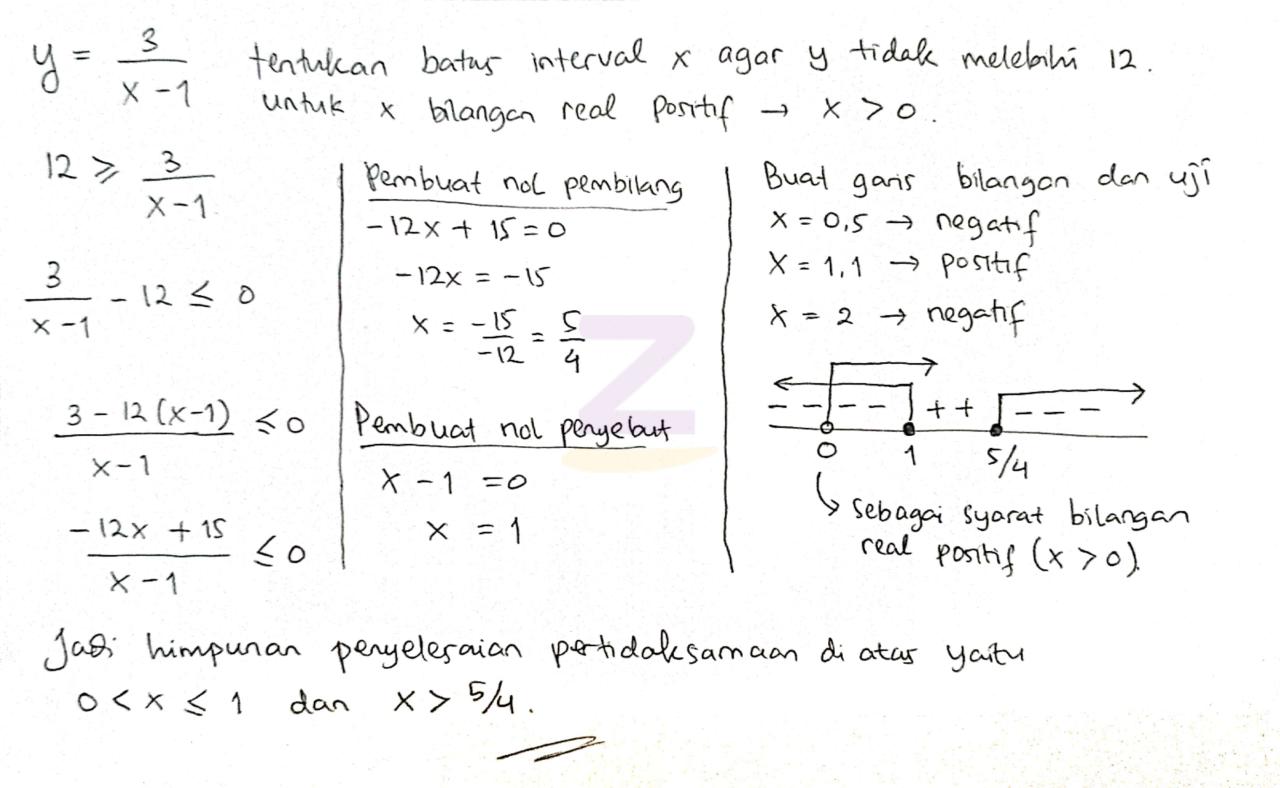 y = 3/(x - 1) tentukan batas interval x agar y tidak melebihi 12.
untuk x bilangan real positif → x > 0.
12 ≥ 3/(x-1)
3/(x-1) - 12 ≤ 0
(3 - 12(x-1))/(x-1) ≤ 0
(-12x + 15)/(x-1) ≤ 0
Pembuat nol pembilang
-12x + 15 = 0
-12x = -15
x = -15/-12 = 5/4
Pembuat nol penyebut
x - 1 = 0
x = 1
Buat garis bilangan dan uji
x = 0,5 → negatif
x = 1,1 → positif
x = 2 → negatif
- - - - - + + - - -
0 1 5/4
↳ sebagai syarat bilangan
real positif (x > 0).
Jadi himpunan penyelesaian pertidaksamaan di atas yaitu
0 < x ≤ 1 dan x > 5/4.
Z